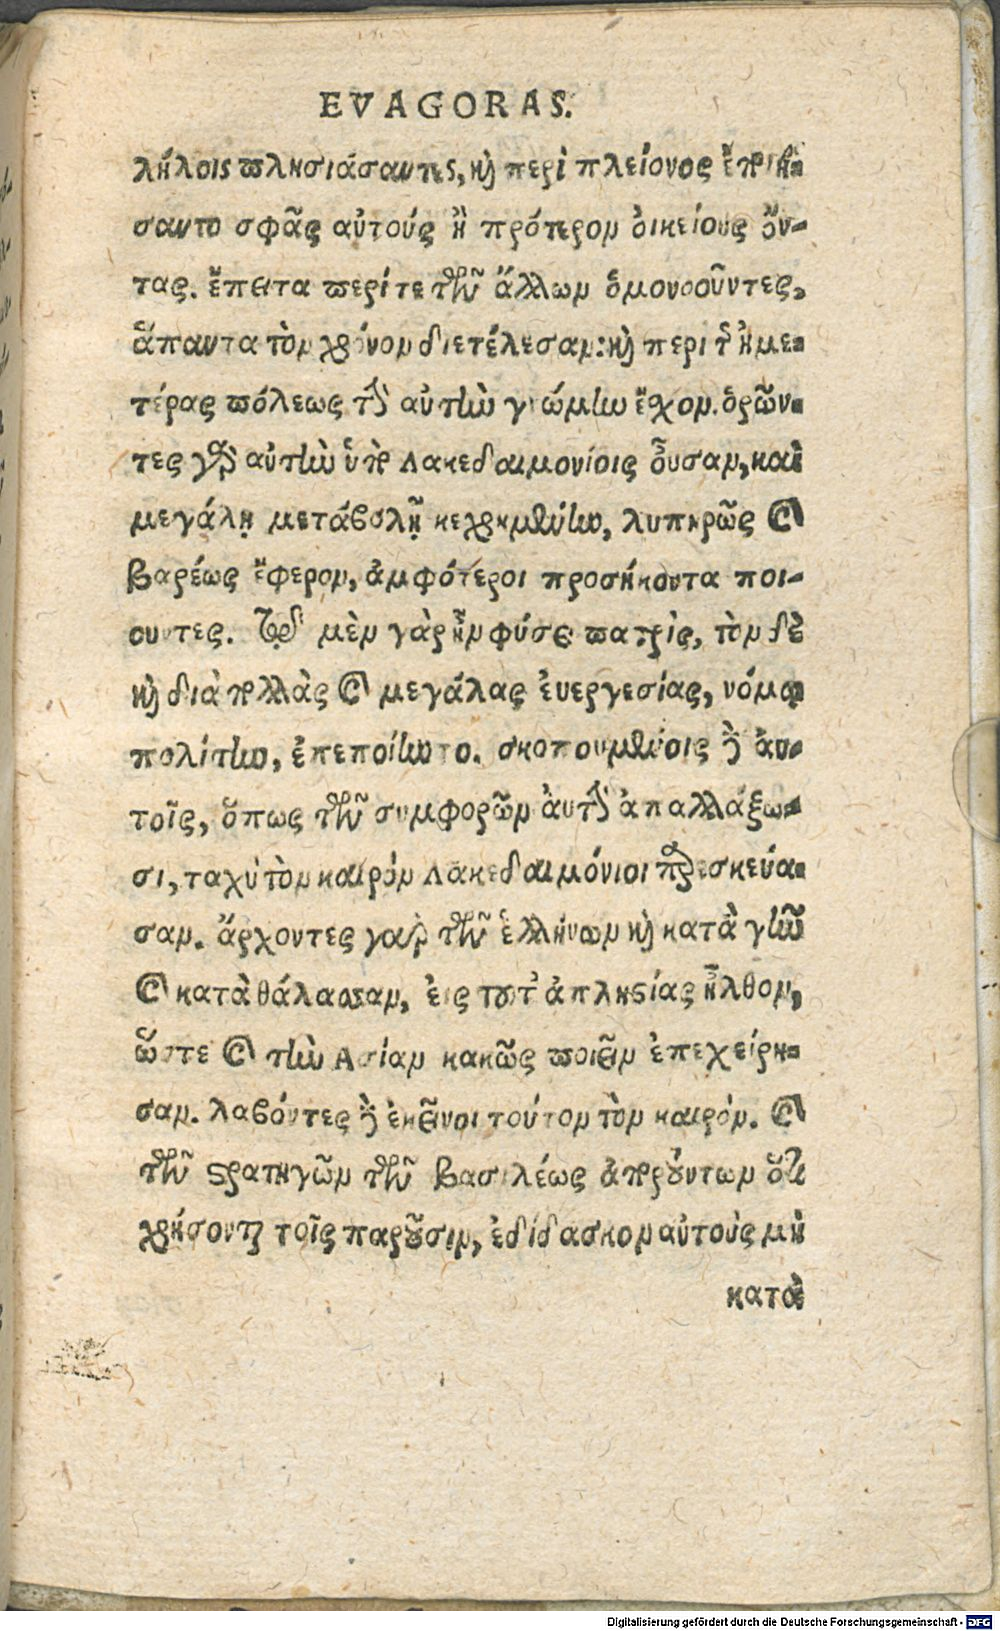 EVAGORAS.
λήλοις πλησιάσαντες, καὶ περὶ πλείονος ἐποιή-
σαντο σφᾶς αὐτούς ἢ πρότερον ὀικείους ὄν-
τας. ἔπειτα περίτε τῶν ἄλλων ὁμονοοῦντες,
ἅπαντα τὸν χρόνον διετέλεσαν: καὶ περὶ τῆς ἡμε-
τέρας πόλεως τὴν αὐτὴν γνώμην ἔχον. ὁρῶν-
τες γὰρ αὐτὴν ὑπὸ Λακεδαιμονίοις οὖσαν, καὶ
μεγάλῃ μεταβολῇ κεχρημένην, λυπηρῶς καὶ
βαρέως ἔφερον, ἀμφότεροι προσήκοντα ποι-
ουντες. τῷ μὲν γὰρ ἦν φύσει πατρὶς, τὸν δὲ
καὶ διὰ πολλὰς καὶ μεγάλας ἐυεργεσίας, νόμῳ
πολίτην, ἐπεποίηντο. σκοπουμένοις δὲ ἀυ-
τοῖς, ὅπως τῶν συμφορῶν ἀυτὴν ἀπαλλάξω-
σι, ταχὺ τὸν καιρὸν Λακεδαιμόνιοι παρεσκεύα-
σαν. ἄρχοντες γὰρ τῶν ἑλλήνων καὶ κατὰ γῆν
καὶ κατὰ θάλασσαν, εἰς τοῦτ᾽ ἀπληστίας ἦλθον,
ὥστε καὶ τὴν Ασίαν κακῶς ποιεῖν ἐπεχείρη-
σαν. λαβόντες δὲ ἐκεῖνοι τούτον τὸν καιρὸν. καὶ
τῶν στρατηγῶν τῶν βασιλέως ἀπορούντων ὅτι
χρήσονται τοῖς παροῦσιν, ἐδίδασκον αὐτοὺς μὴ
κατὰ
Digitalisierung gefördert durch die Deutsche Forschungsgemeinschaft - DFG